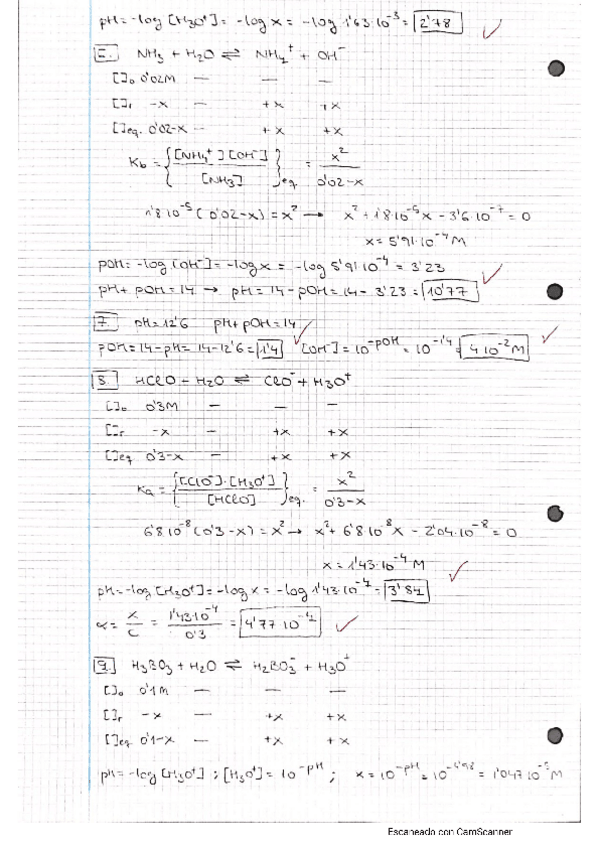 pH = -log [H₃O⁺] = -log x = -log 1'63·10⁻³ = 2'78
NH₃ + H₂O ⇌ NH₄⁺ + OH⁻
[ ]₀ 0'02M — — —
[ ]r -x — +x +x
[ ]eq. 0'02-x — +x +x
Kb = {[NH₄⁺][OH⁻] / [NH₃]}eq = x² / 0'02-x
1'8·10⁻⁵(0'02-x) = x² → x² + 1'8·10⁻⁵x - 3'6·10⁻⁷ = 0
x = 5'91·10⁻⁴ M
pOH = -log [OH⁻] = -log x = -log 5'91·10⁻⁴ = 3'23
pH + pOH = 14 → pH = 14 - pOH = 14 - 3'23 = 10'77
7. pH = 12'6 pH + pOH = 14
pOH = 14 - pH = 14 - 12'6 = 1'4 [OH⁻] = 10^-pOH = 10^-1'4 = 4·10⁻² M
8. HClO + H₂O ⇌ ClO⁻ + H₃O⁺
[ ]₀ 0'3M — — —
[ ]r -x — +x +x
[ ]eq 0'3-x — +x +x
Ka = {[ClO⁻]·[H₃O⁺] / [HClO]}eq. = x² / 0'3-x
6'8·10⁻⁸(0'3-x) = x² → x² + 6'8·10⁻⁸x - 2'04·10⁻⁸ = 0
x = 1'43·10⁻⁴ M
pH = -log [H₃O⁺] = -log x = -log 1'43·10⁻⁴ = 3'84
α = x/c = 1'43·10⁻⁴ / 0'3 = 4'77·10⁻⁴
9. H₃BO₃ + H₂O ⇌ H₂BO₃⁻ + H₃O⁺
[ ]₀ 0'1M — — —
[ ]r -x — +x +x
[ ]eq 0'1-x — +x +x
pH = -log [H₃O⁺] ; [H₃O⁺] = 10^-pH ; x = 10^-pH = 10^-4'98 = 1'047·10⁻⁵ M
Escaneado con CamScanner